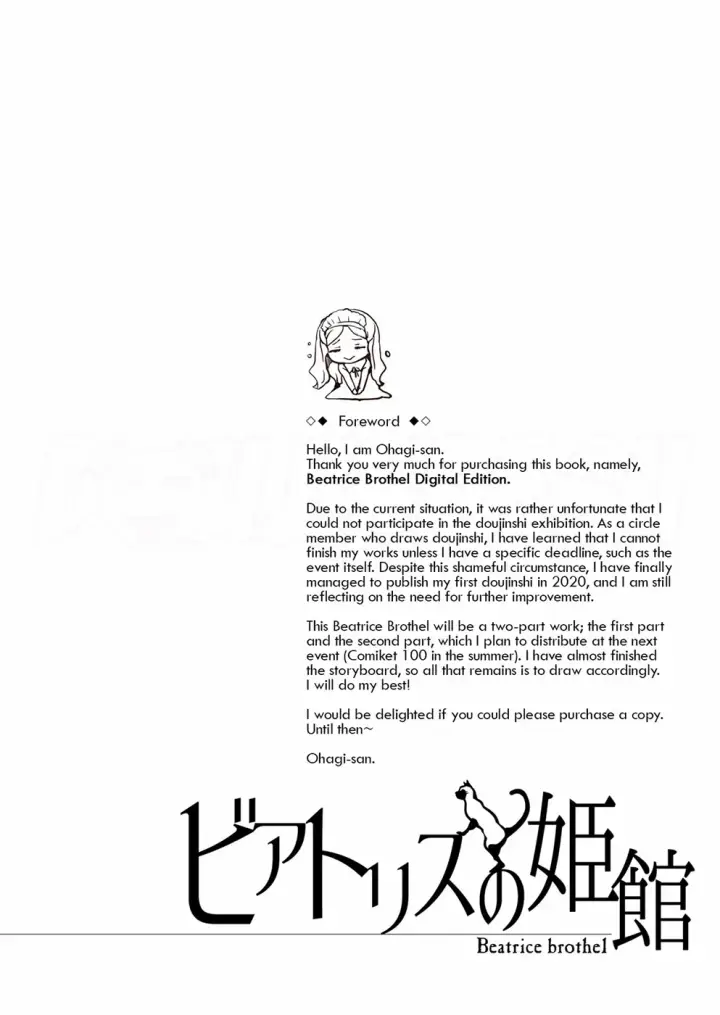 ◇◆ Foreword ◆◇
Hello, I am Ohagi-san.
Thank you very much for purchasing this book, namely,
Beatrice Brothel Digital Edition.
Due to the current situation, it was rather unfortunate that I
could not participate in the doujinshi exhibition. As a circle
member who draws doujinshi, I have learned that I cannot
finish my works unless I have a specific deadline, such as the
event itself. Despite this shameful circumstance, I have finally
managed to publish my first doujinshi in 2020, and I am still
reflecting on the need for further improvement.
This Beatrice Brothel will be a two-part work; the first part
and the second part, which I plan to distribute at the next
event (Comiket 100 in the summer). I have almost finished
the storyboard, so all that remains is to draw accordingly.
I will do my best!
I would be delighted if you could please purchase a copy.
Until then~
Ohagi-san.
ビアトリスの姫館
Beatrice brothel